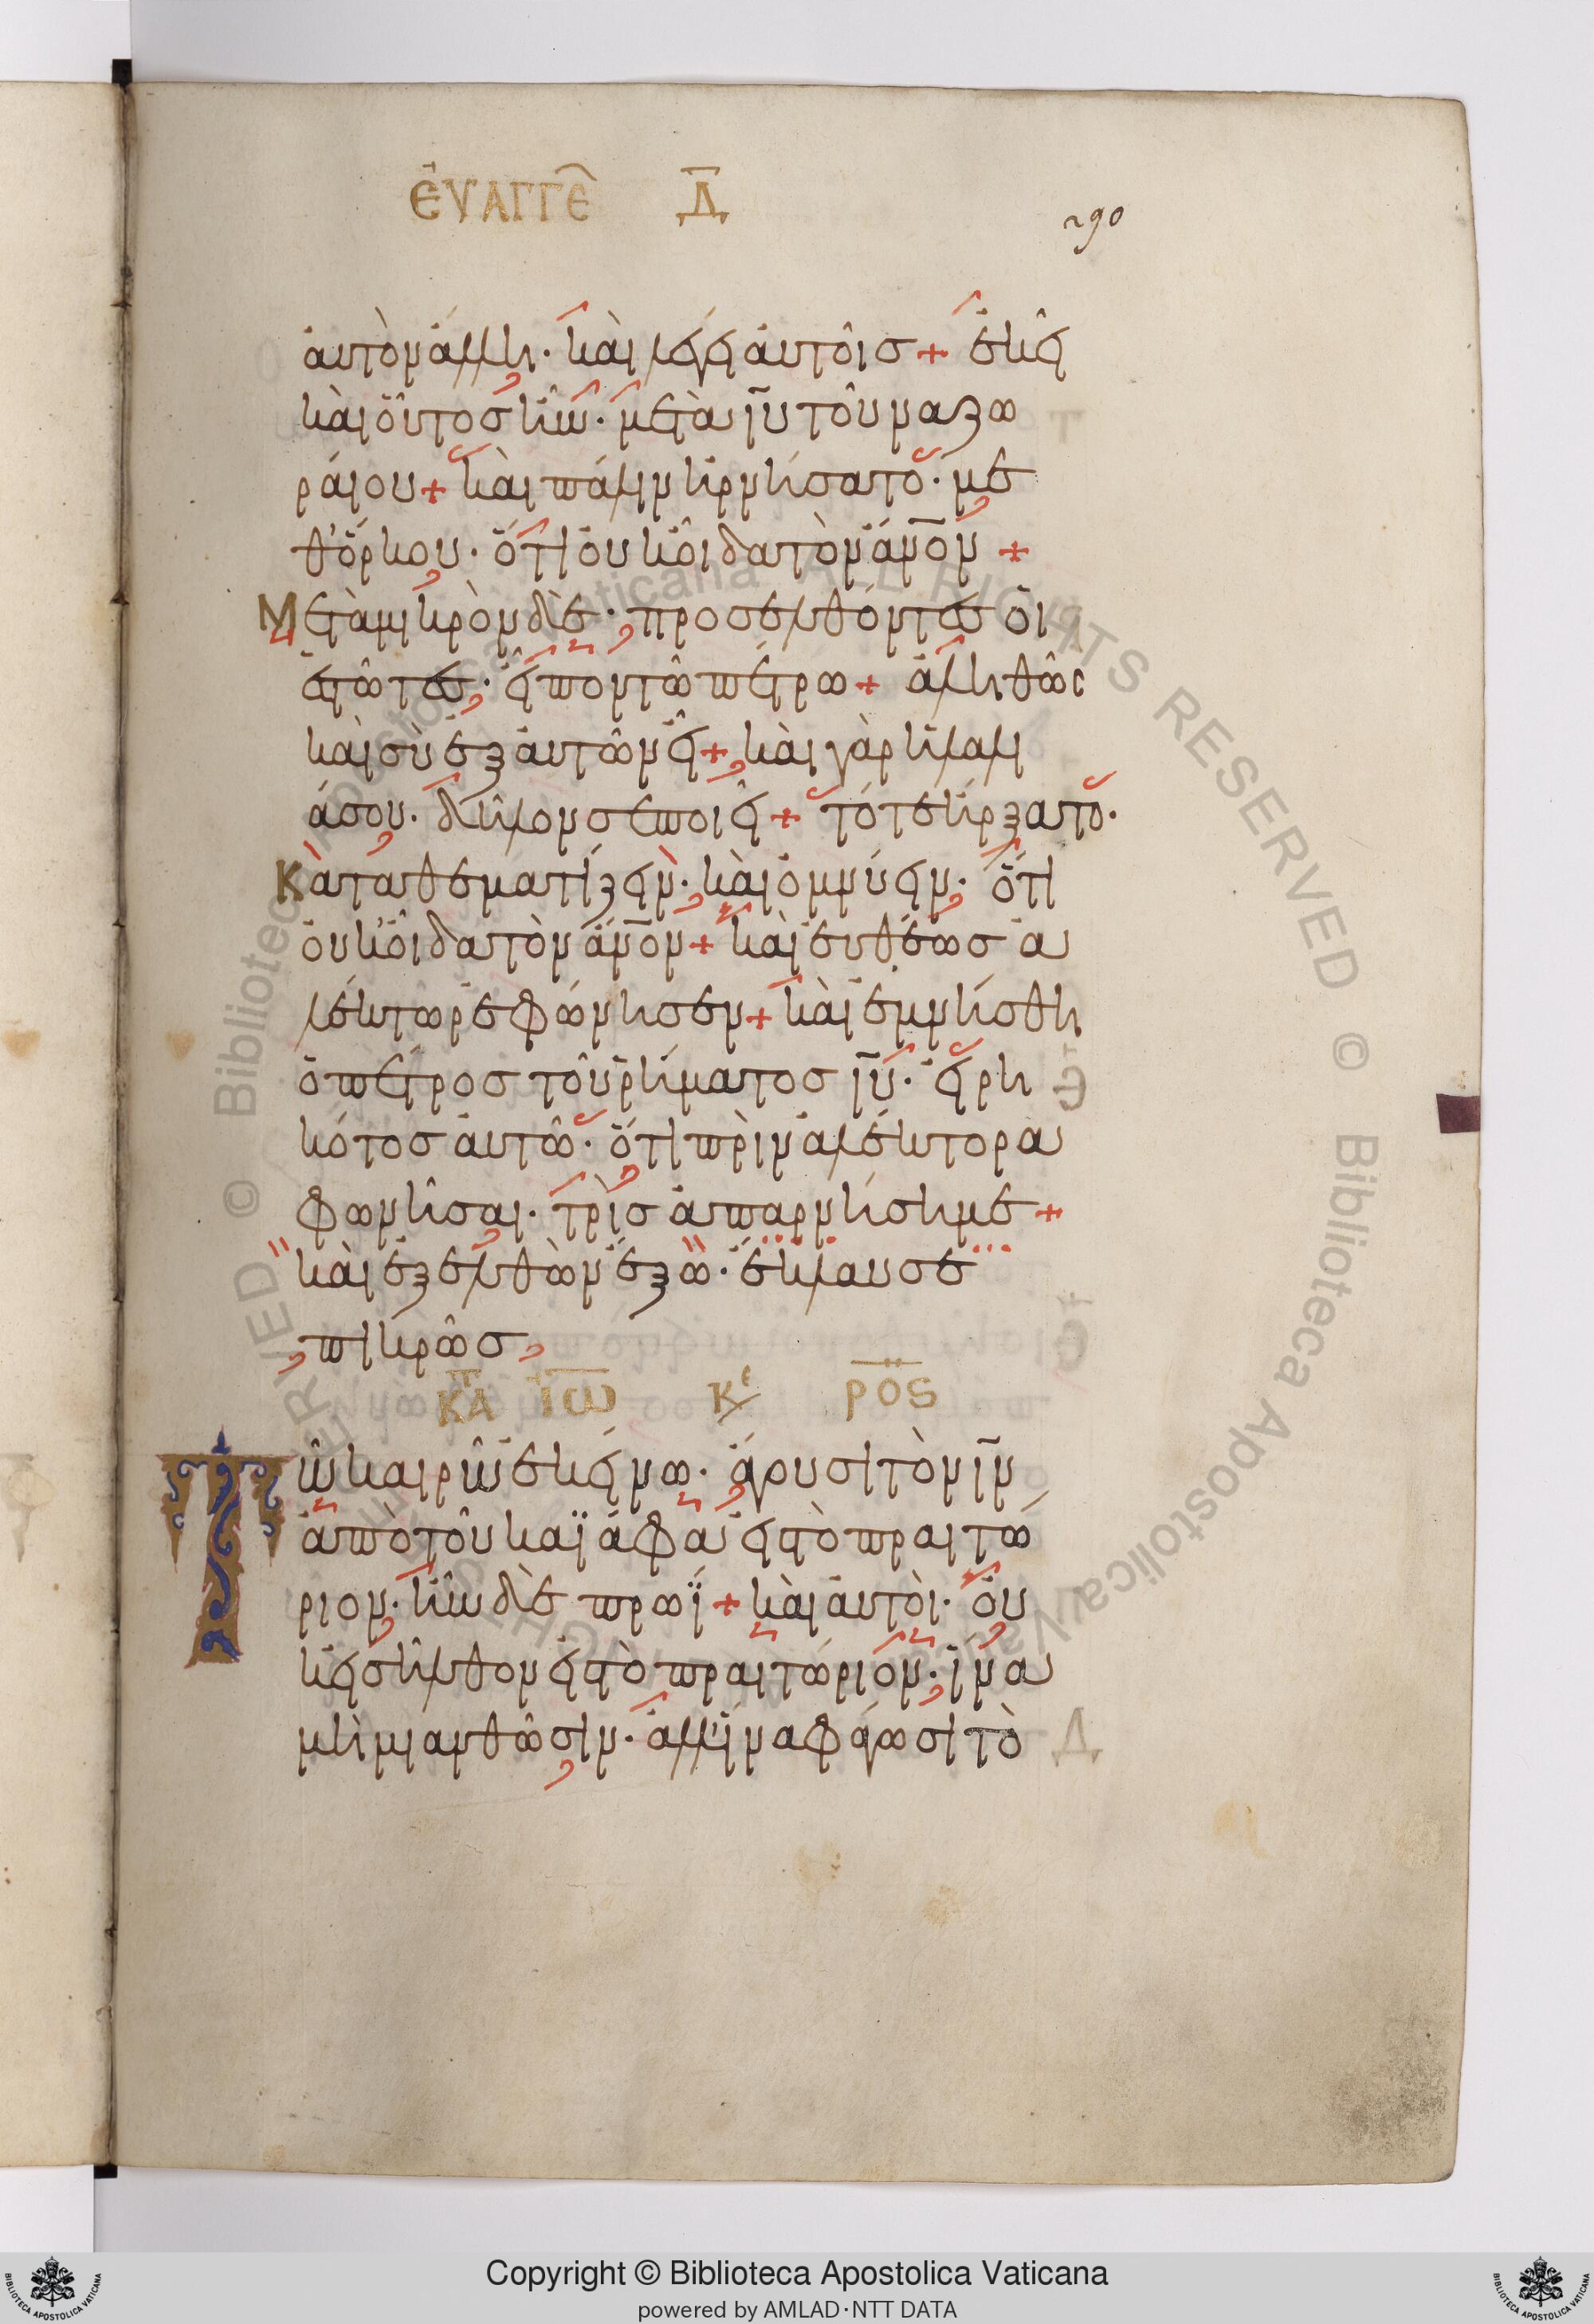 ἐυαγγε Δ
290
ἀυτὸν ἄλλη· κὰι λέγει ἀυτοῖσ + ἐκεῖ
κὰι ὁῦτοσ ἦν· μετὰ ιυ τοῦ ναζω
ράιου + κὰι πάλιν ἠρνήσατο· με
θ' ὅρκου· ὅτι ὀυκ ὀῖδα τὸν ἀνον +
Μετὰ μικρὸν δὲ· προσελθόντεσ ὁι
ἑστῶτεσ· ἐῖπον τῶ πέτρω + ἀληθῶς
καὶ σὺ ἐξ ἀυτῶν εἶ + κὰι γὰρ ἡ λαλι
ά σου· δῆλόν σε ποιεῖ + τότε ἤρξατο·
Καταθεματίζειν· κὰι ὀμνύειν· ὅτι
ὀυκ ὀῖδα τὸν ἀνον + κὰι ἐυθέωσ ἀ
λέκτωρ ἐφώνησεν + κὰι ἐμνήσθη
ὁ πέτροσ τοῦ ῥήματοσ ιυ· ἐιρη
κότοσ ἀυτῶ· ὅτι πρὶν ἀλέκτορα
φωνῆσαι· τρὶσ ἀπαρνήσημε +
κὰι ἐξελθὼν ἔξω· ἔκλαυσε
πικρῶσ
κα ιω κε ροσ
Τῶ καιρῶ ἐκείνω· ἄγουσι τὸν ιν
ἀπὸ τοῦ καϊάφα εἰσ τὸ πραιτώ
ριον· ἦν δὲ πρωΐ + κὰι ἀυτὸι· ὀυ
κ εἰσῆλθον εἰσ τὸ πραιτώριον· ἵνα
μὴ μιανθῶσιν· ἀλλ' ἵνα φάγωσι τὸ
Copyright © Biblioteca Apostolica Vaticana
powered by AMLAD·NTT DATA